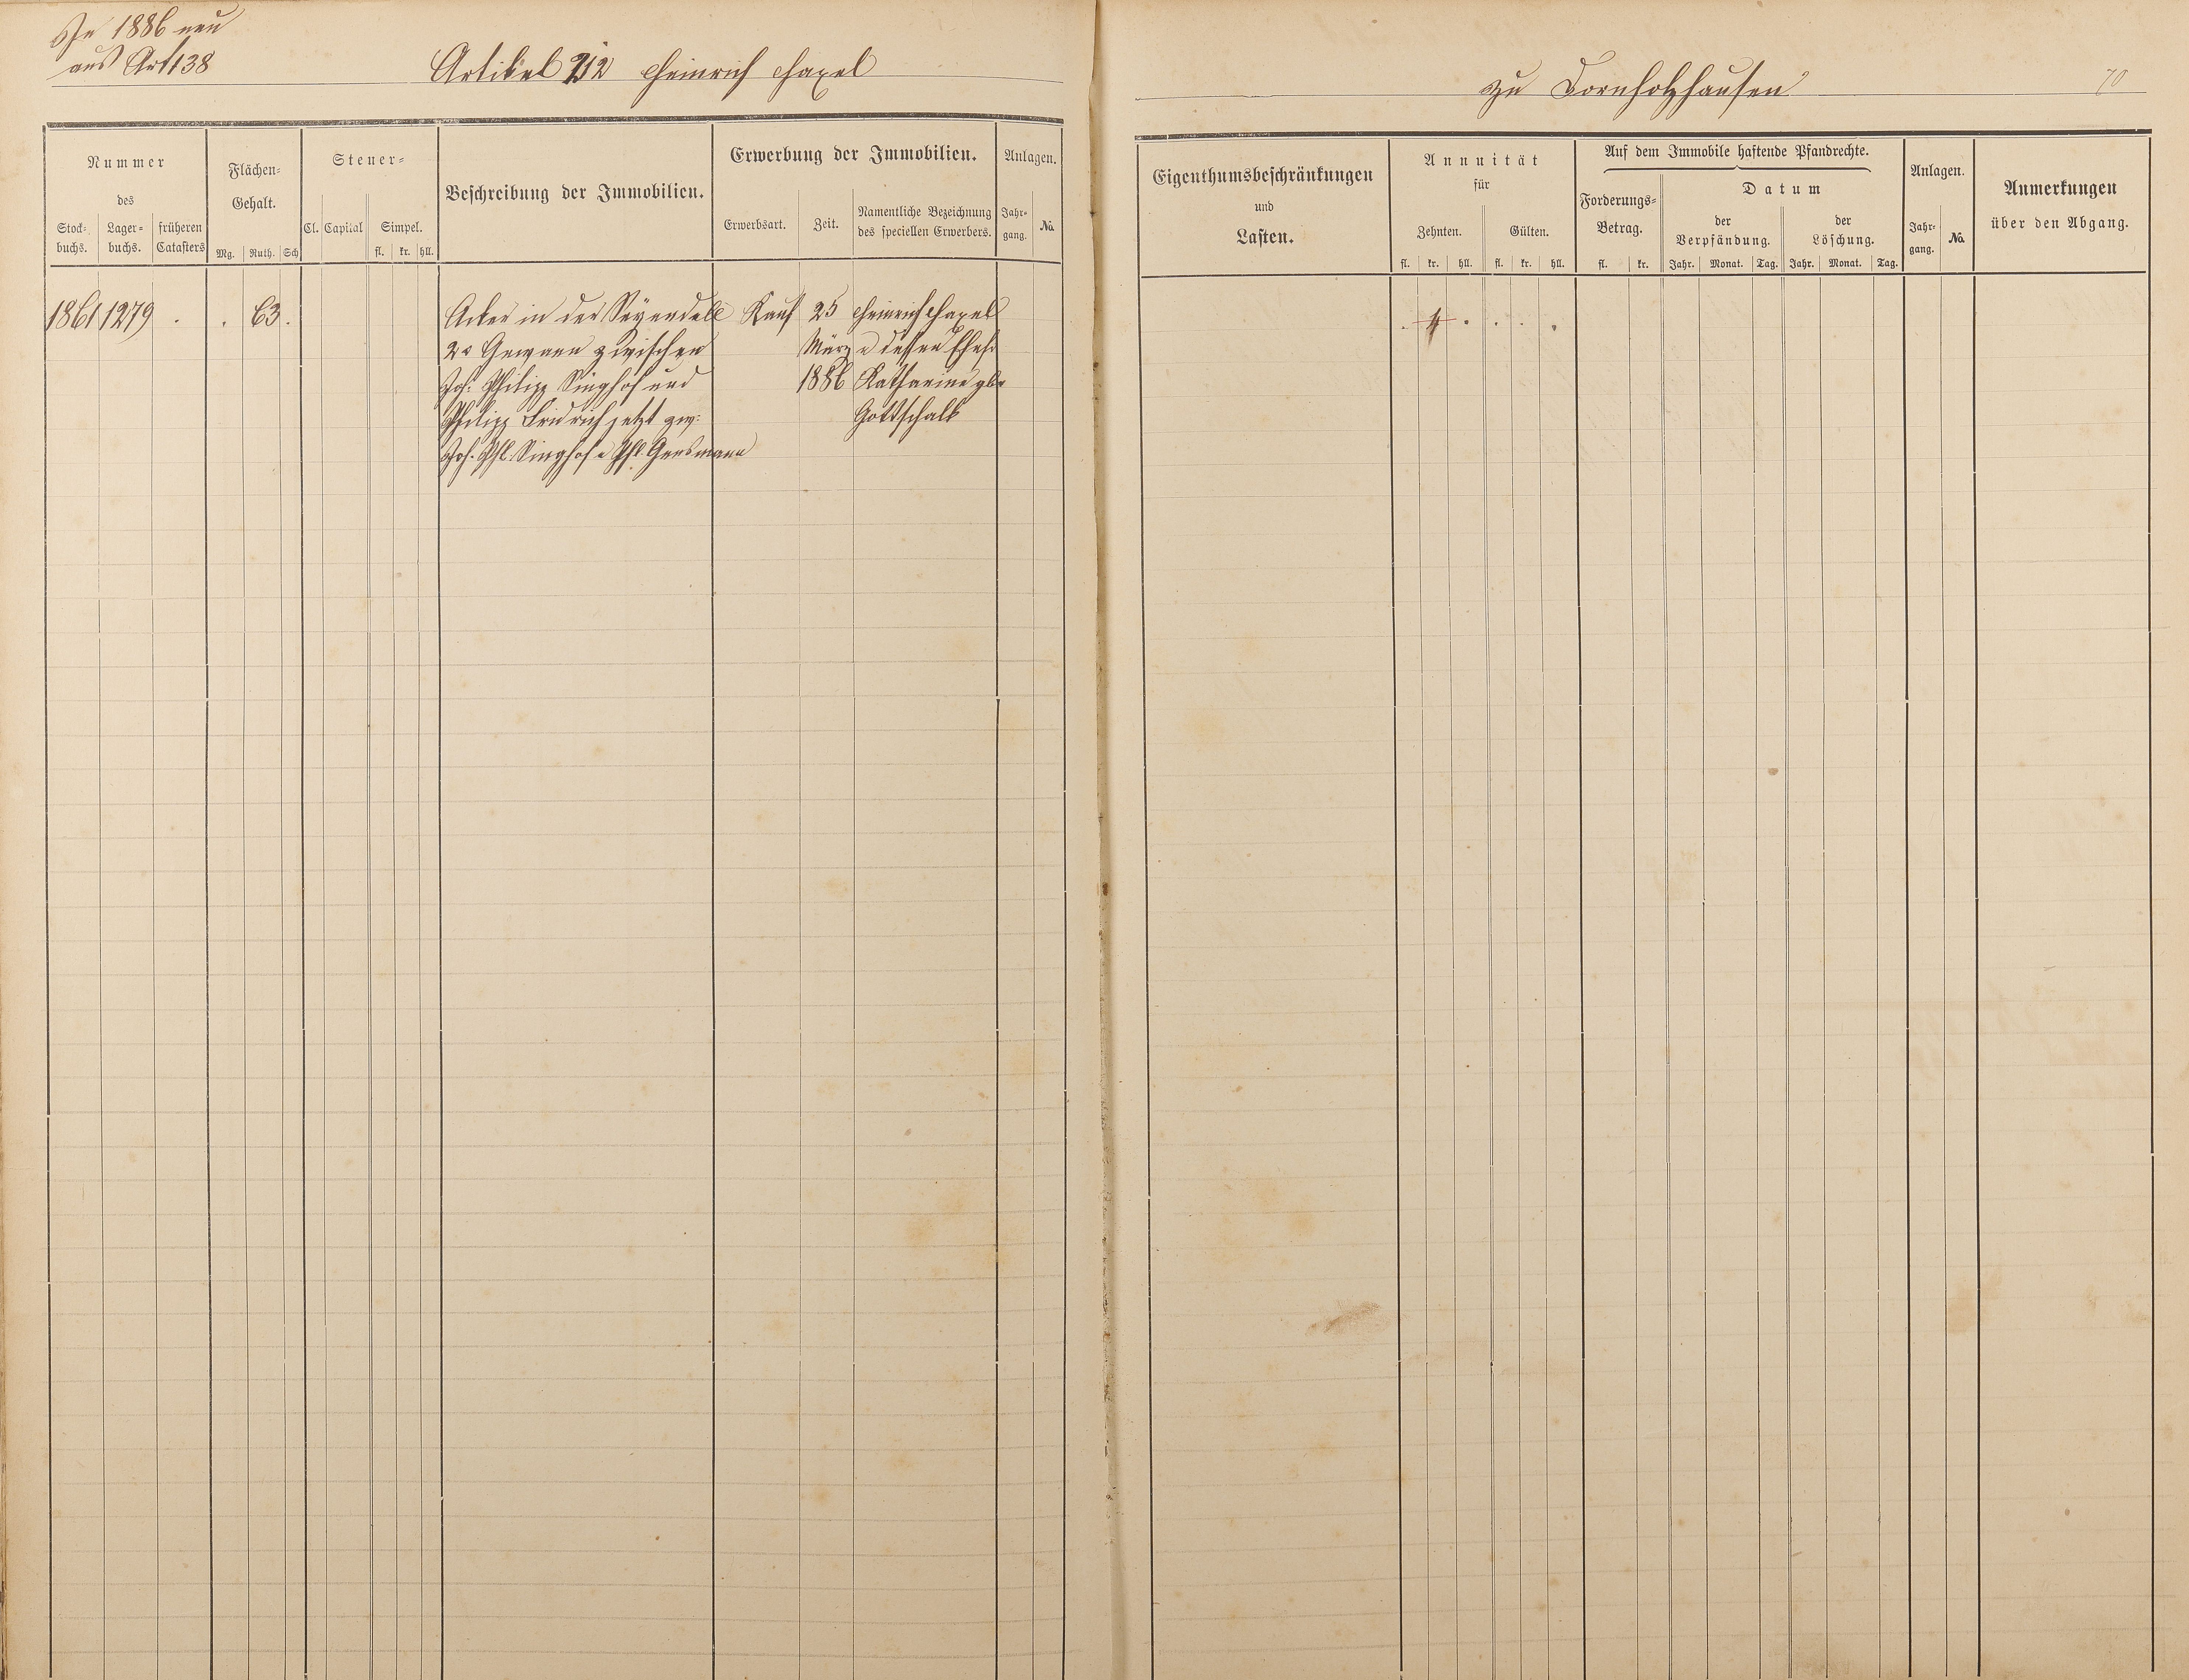 pr 1886 neu
aus Art 138
Artikel 212 Heinrich Haxel
Nummer
des
Stock-
buchs.
Lager-
buchs.
früheren
Catasters
Flächen-
Gehalt.
Mg. Ruth. Sch
Steuer-
Cl. Capital Simpel.
fl. kr. hll.
Beschreibung der Immobilien.
Erwerbung der Immobilien.
Erwerbsart. Zeit.
Namentliche Bezeichnung
des speciellen Erwerbers.
Anlagen.
Jahr-
gang.
No.
1861 1279 . . 63 . Acker in der Kauf 25 Heinrich Haxel
2r Gewann zwischen März u dessen Ehefr
Joh. Philipp Singhof und 1886 Katharine gbr
Philipp Fridrich jetzt zw: Gottschalk
Joh. Phl. Singhof u Phl. Gensmann
zu Dornholzhausen
70
Eigenthumsbeschränkungen
und
Lasten.
Annuität
für
Zehnten. Gülten.
fl. kr. hll. fl. kr. hll.
Auf dem Immobile haftende Pfandrechte.
Forderungs-
Betrag.
fl. kr.
Datum
der
Verpfändung.
der
Löschung.
Jahr. Monat. Tag. Jahr. Monat. Tag.
Anlagen.
Jahr-
gang.
No.
Anmerkungen
über den Abgang.
. 4 . . . .